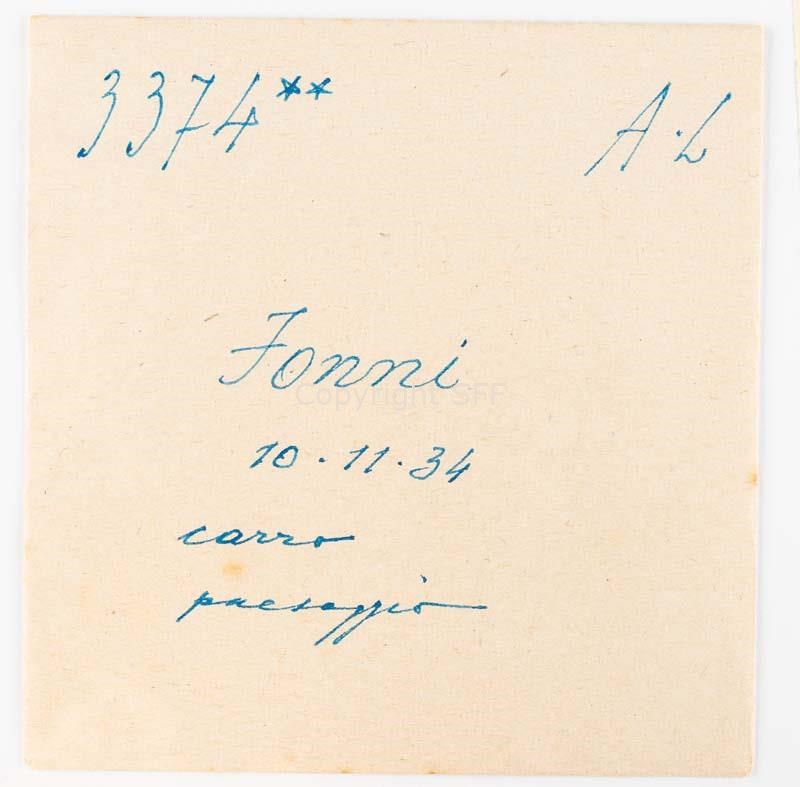 3374** A·L
Fonni
Copyright SFF
10·11·34
carro
paesaggio